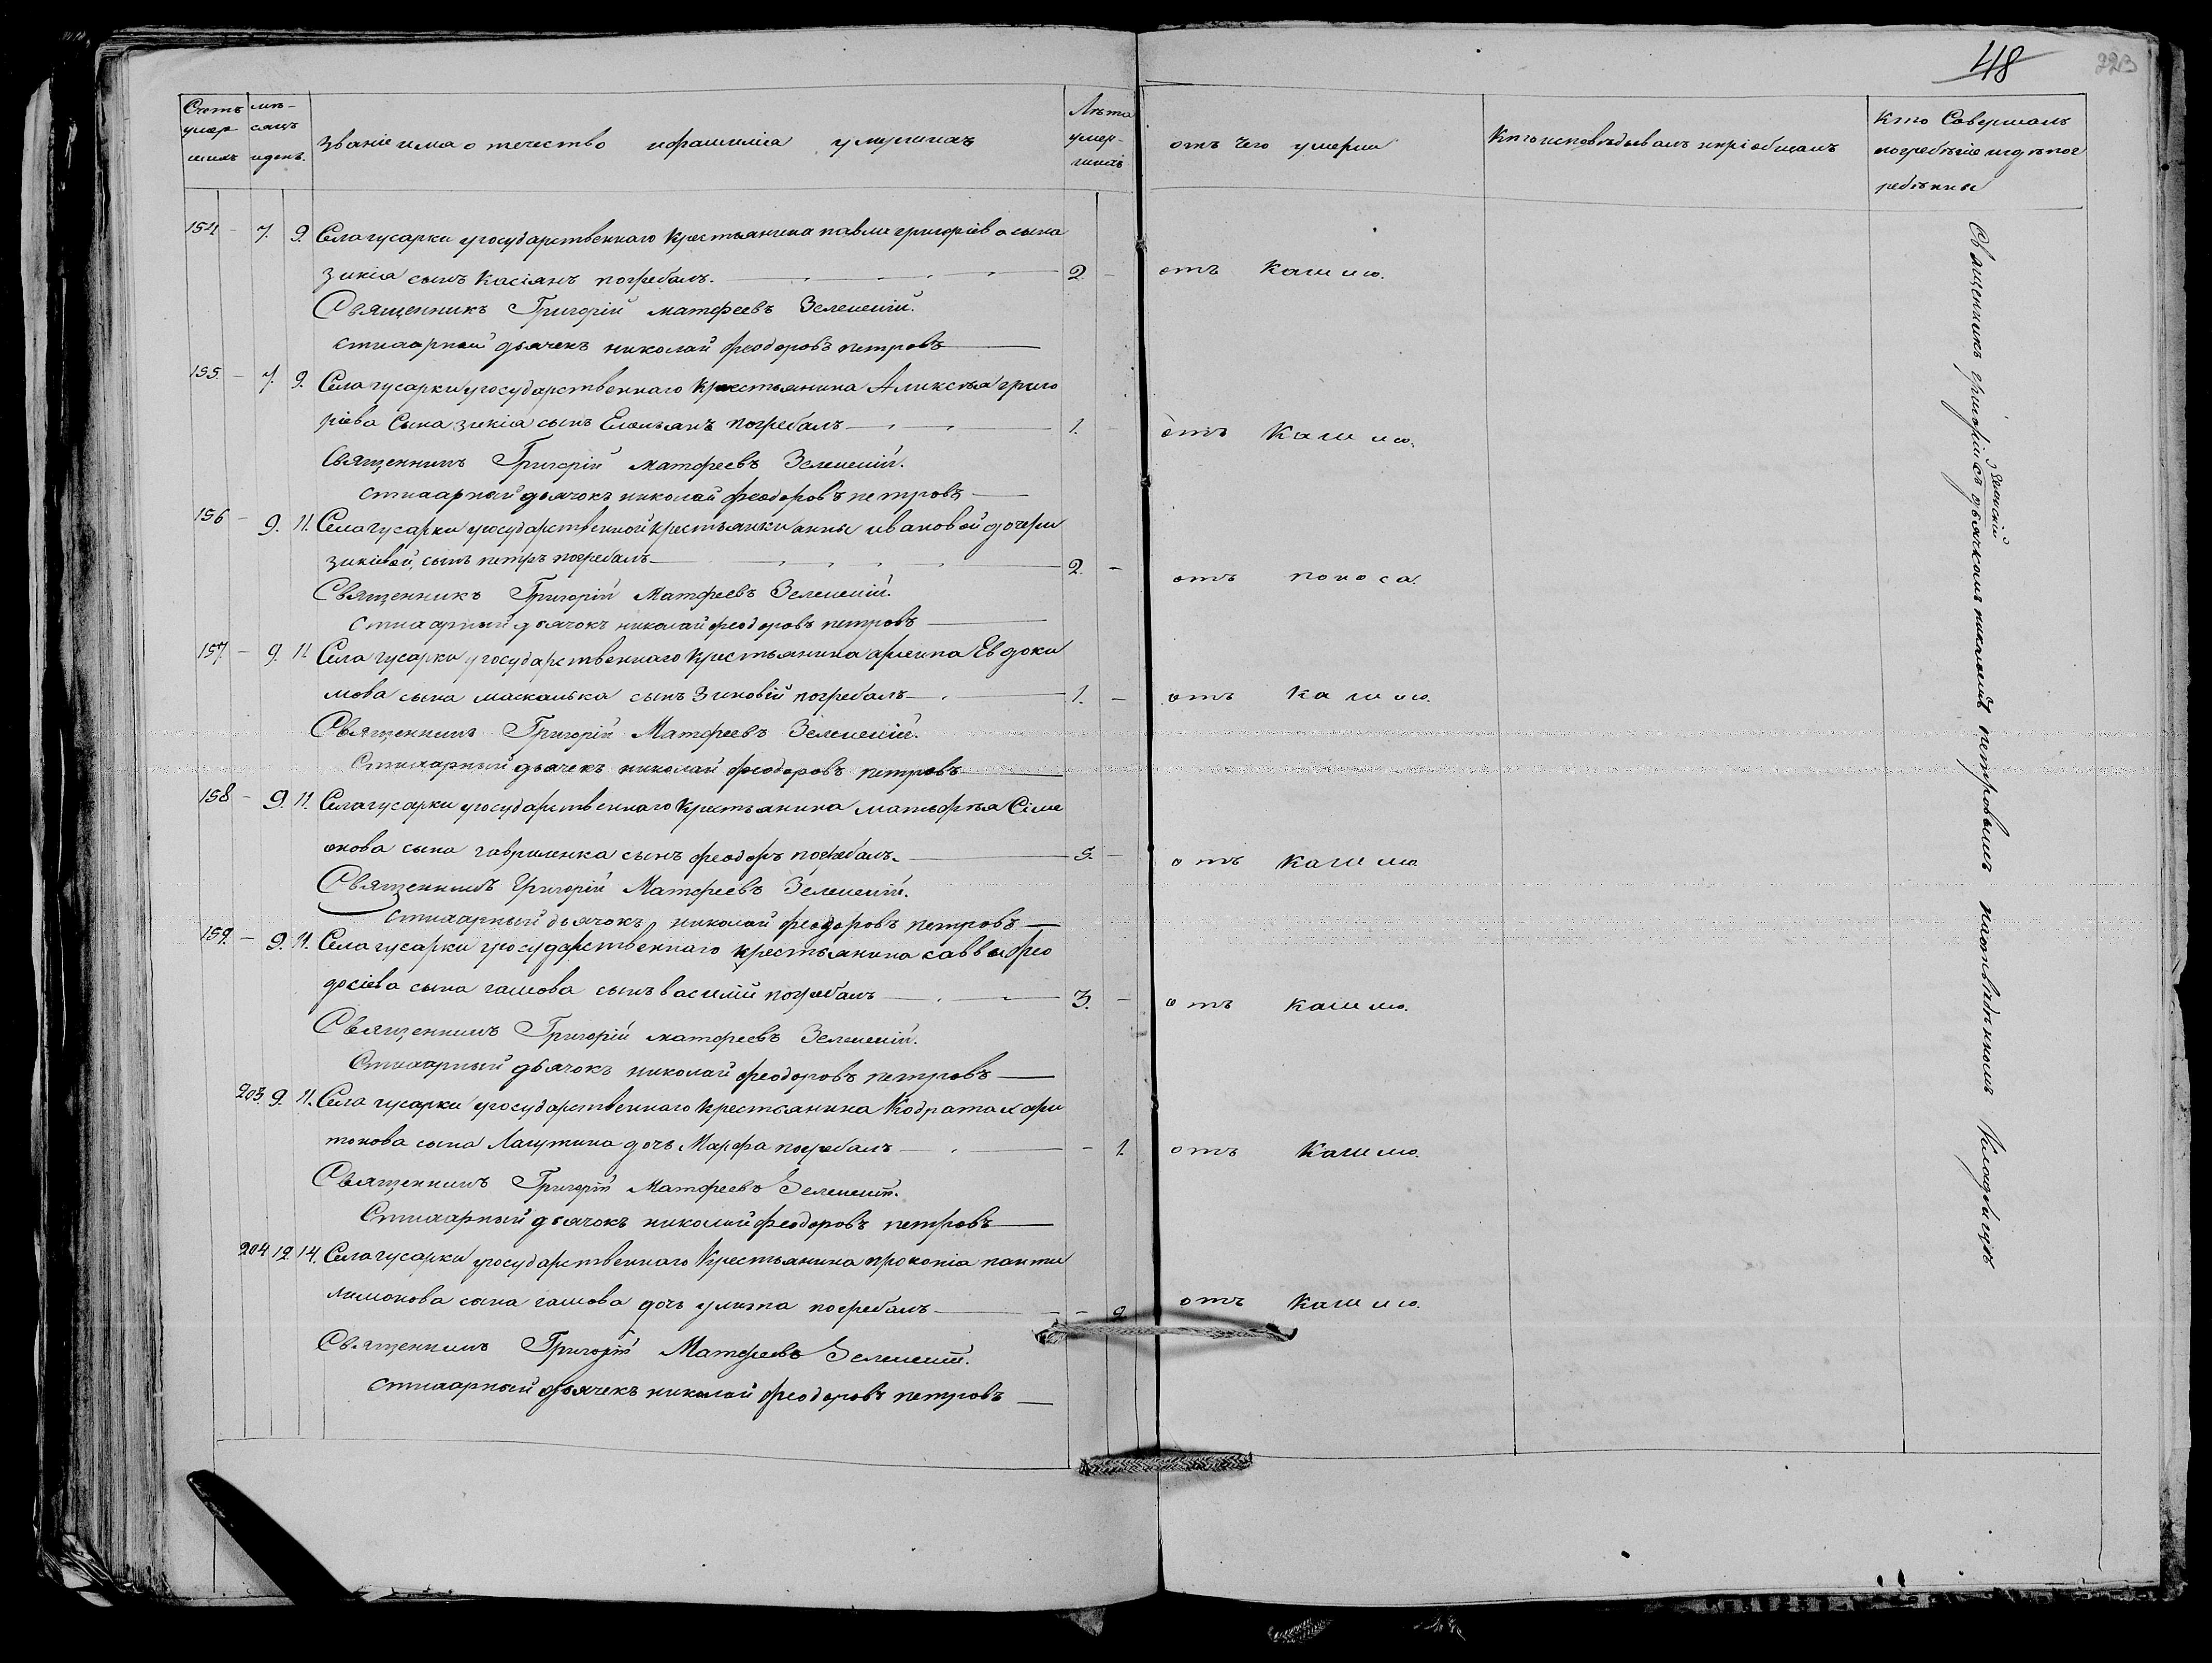 48
223
Счетъ умер шихъ
мѣ- сяцъ и день.
званіе има отечество ифамиліа умершихъ
Лѣта умер- шихъ
отъ чего умерли
Кто исповѣдывалъ ипріобщалъ
Кто Совершалъ погребѣніе игдѣ погребѣнны
154 – 7. 9. Села гусарки угосударственнаго крестьянина павла григоріева сына
зикіа сынъ Касіянъ погребалъ. 2 – отъ Кашлю.
Священникъ Григорій матфеевъ Зеленскій.
стихарный дьячекъ николай феодоровъ петровъ
155. – 7. 9. Села гусарки угосударственнаго Крестьянина Аликсѣя григо
ріева Сына зикіа сынъ Емельянъ погребалъ 1. отъ Кашлю.
Священникъ Григорій матфеевъ Зеленскій.
стихарный дьячокъ николай феодоровъ петровъ
156 – 9. 11. Села гусарки угосударственной крестьянки анны ивановой дочери
зикіевой, сынъ петръ погребалъ 2. – отъ поноса.
Священникъ Григорій Матфеевъ Зеленскій.
стихарный дьячокъ николай феодоровъ петровъ
157 – 9. 11 Села гусарки угосударственнаго Крестьянина архипа Евдоки
мова сына маскалька сынъ Зиновій погребалъ 1. – отъ кашлю.
Священникъ Григорій Матфеевъ Зеленскій.
Стихарный дьячекъ николай феодоровъ петровъ
158 – 9. 11. Села гусарки угосударственнаго Крестьянина матьфѣя Симе
онова сына гавриленка сынъ феодоръ погребалъ. 5. – отъ кашлю
Священникъ Григорій Матфеевъ Зеленскій.
стихарный дьячокъ николай феодоровъ петровъ
159. – 9. 11. Села гусарки угосударственнаго крестьянина саввы фео
досіева сына гамова сынъ василій погребалъ 3. – отъ кашлю.
Священникъ Григорій матфеевъ Зеленскій.
Стихарный дьячокъ николай феодоровъ петровъ
203. 9. 11. Села гусарки угосударственнаго крестьянина Кодрата хари
тонова сына Лагутина дочь Марфа погребалъ – 1. отъ Кашлю.
Священникъ Григорій Матфеевъ Зеленскій.
Стихарный дьячокъ николай феодоровъ петровъ
204 12 14. Села гусарки угосударственнаго Крестьянина прокопіа панти
лимонова сына гамова дочь улита погребалъ – 2 отъ Кашлю.
Священникъ Григорій Матфеевъ Зеленскій.
стихарный дьячекъ николай феодоровъ петровъ
Священникъ григорій Зеленскій съ дьячкомъ николаемъ петровымъ наопвѣдѣнномъ Кладбищѣ